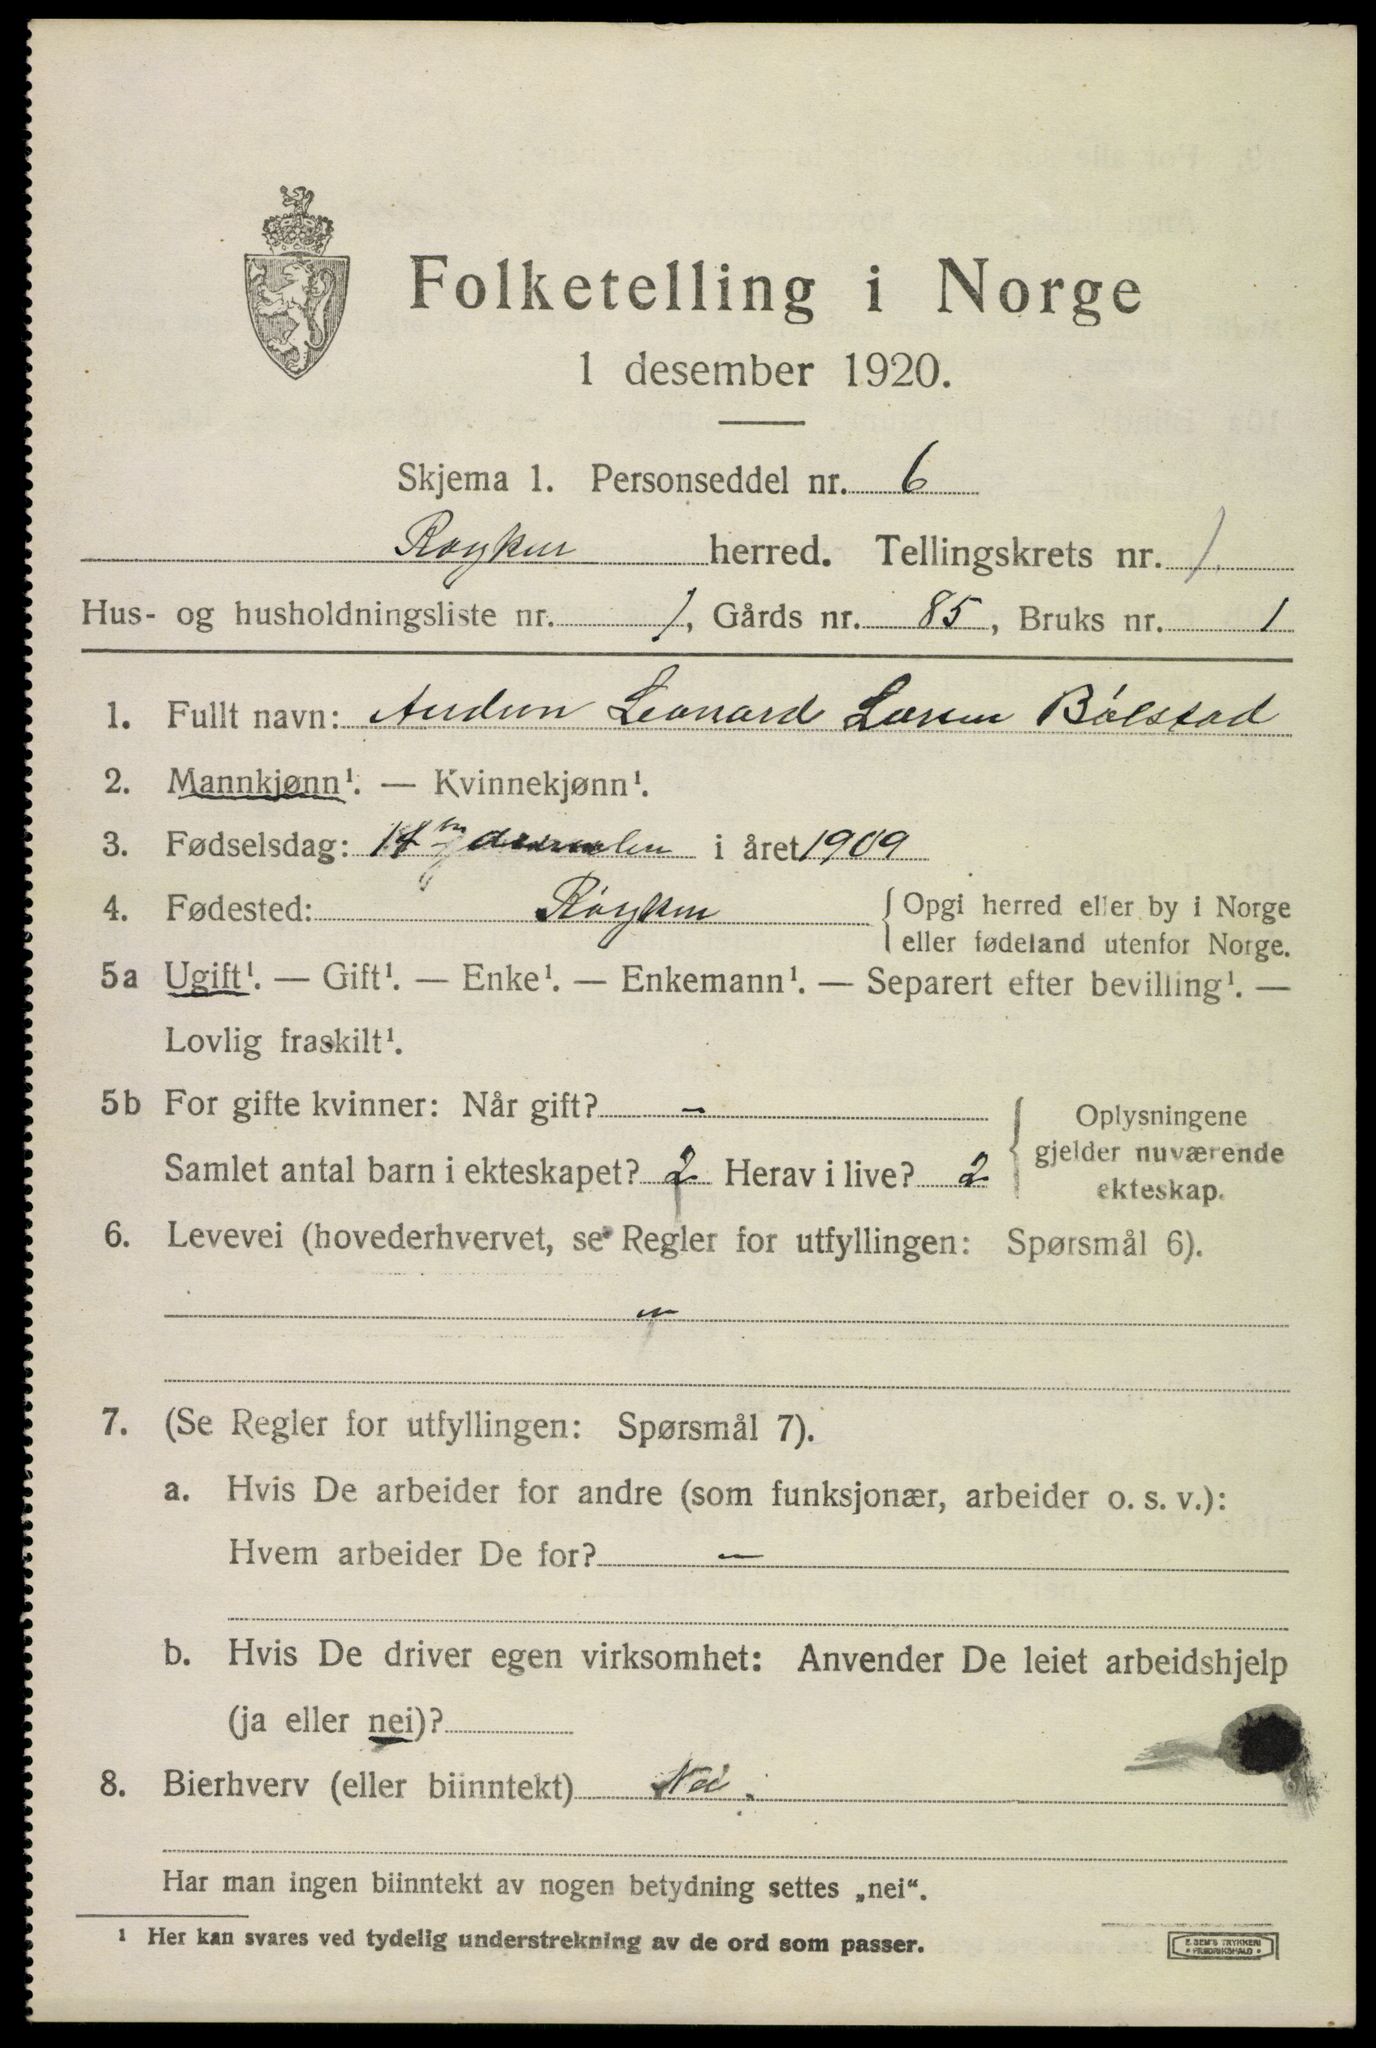 Folketelling i Norge
1 desember 1920.
Skjema 1. Personseddel nr. 6
Røyken herred. Tellingskrets nr. 1.
Hus- og husholdningsliste nr. 1, Gårds nr. 85, Bruks nr. 1
1. Fullt navn: Leonard Larsen Bølstad
2. Mannkjønn¹. — Kvinnekjønn¹.
3. Fødselsdag: i året 1909
4. Fødested: Røyken { Opgi herred eller by i Norge
eller fødeland utenfor Norge.
5a Ugift¹. — Gift¹. — Enke¹. — Enkemann¹. — Separert efter bevilling¹. —
Lovlig fraskilt¹.
5b For gifte kvinner: Når gift? –
Samlet antal barn i ekteskapet? 2 Herav i live? 2
Oplysningene
gjelder nuværende
ekteskap.
6. Levevei (hovederhvervet, se Regler for utfyllingen: Spørsmål 6).
7. (Se Regler for utfyllingen: Spørsmål 7).
a. Hvis De arbeider for andre (som funksjonær, arbeider o. s. v.):
Hvem arbeider De for? –
b. Hvis De driver egen virksomhet: Anvender De leiet arbeidshjelp
(ja eller nei)?
8. Bierhverv (eller biinntekt) Nei.
Har man ingen biinntekt av nogen betydning settes „nei“.
¹ Her kan svares ved tydelig understrekning av de ord som passer.
E. SEM'S TRYKKERI
• FREDRIKSHALD •